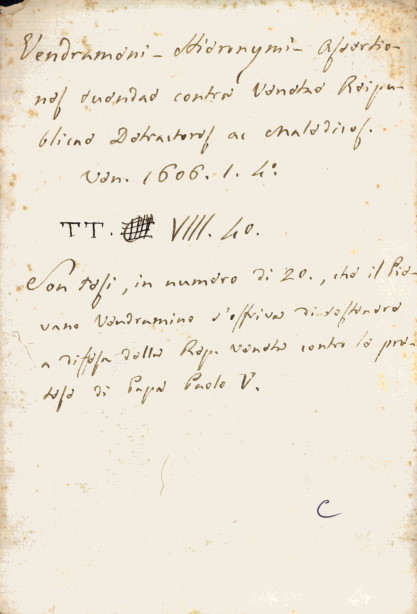 Vendrameni - Hieronymi - Assertio-
nes tuendae contra Venetae Reipu-
blicae Detractores ac Maledicos.
Ven. 1606. 1. 4°.
TT. VIII. 40.
Son tesi, in numero di 20., che il Pio-
vano Vendramino s'offriva di sostenere
a difesa della Rep. Veneta contro le pre-
tese di Papa Paolo V.
C